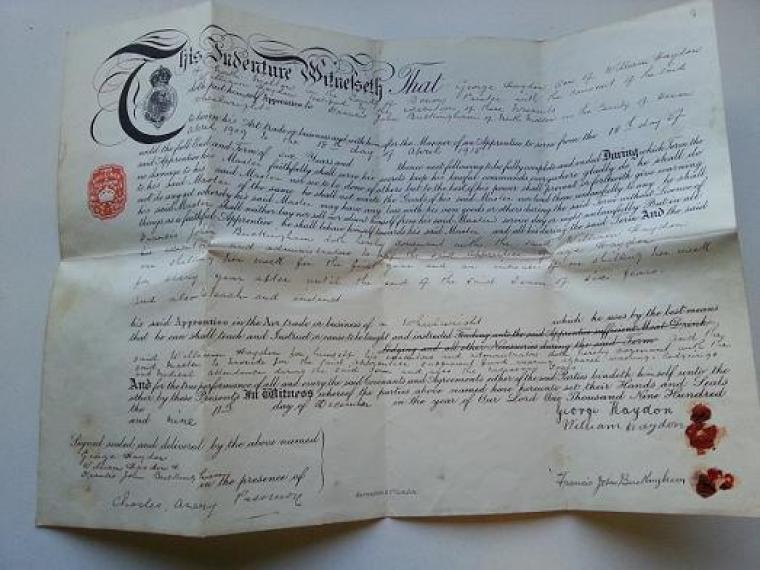 This Indenture Witnesseth That George Haydon Son of William Haydon
of North Molton in the County Devon with the consent of the said
William Haydon
doth put himself Apprentice to Francis John Buckingham of North Molton in the County of Devon
Wheelwright
to learn his Art trade or business and with him after the Manner of an Apprentice to serve from the 18th day of
April 1909 to the 18th day of April 1915
until the full End and Term of six Years and
thence next following to be fully complete and ended During which Term the
said Apprentice his Master faithfully shall serve his secrets keep his lawful commands everywhere gladly do he shall do
no damage to his said Master nor see to be done of others but to the best of his power shall prevent or forthwith give warning
to his said Master of the same he shall not waste the Goods of his said Master nor lend them unlawfully to any he shall
not do any act whereby his said Master may have any loss with his own goods or others during the said Term without Licence of
his said Master shall neither buy nor sell nor absent himself from his said Master's service day or night unlawfully But in all
things as a faithful Apprentice he shall behave himself towards his said Master and all his during the said Term And the said
Francis John Buckingham doth hereby covenant with the said William Haydon
his executors and administrators to pay the said apprentice George Haydon
one shilling per week for the first year and an increase of one shilling per week
for every year after until the end of the said Term of Six Years
and also teach and instruct
his said Apprentice in the Art trade or business of a Wheelwright which he uses by the best means
that he can shall teach and Instruct or cause to be taught and instructed Finding unto the said Apprentice sufficient Meat Drink
Lodging and all other Necessaries during the said Term And the
said William Haydon for himself his executors and administrators doth hereby covenant with the said
Master to provide for the said apprentice sufficient food wearing apparel washing lodgings
and Medical attendance during the said Term
And for the true performance of all and every the said Covenants and Agreements either of the said Parties bindeth himself unto the
other by these Presents In Witness whereof the parties above named have hereunto set their Hands and Seals
the 11th day of December in the year of Our Lord One Thousand Nine Hundred
and nine
George Haydon
William Haydon
Signed sealed and delivered by the above named
George Haydon
William Haydon &
Francis John Buckingham in the presence of
Francis John Buckingham
Charles